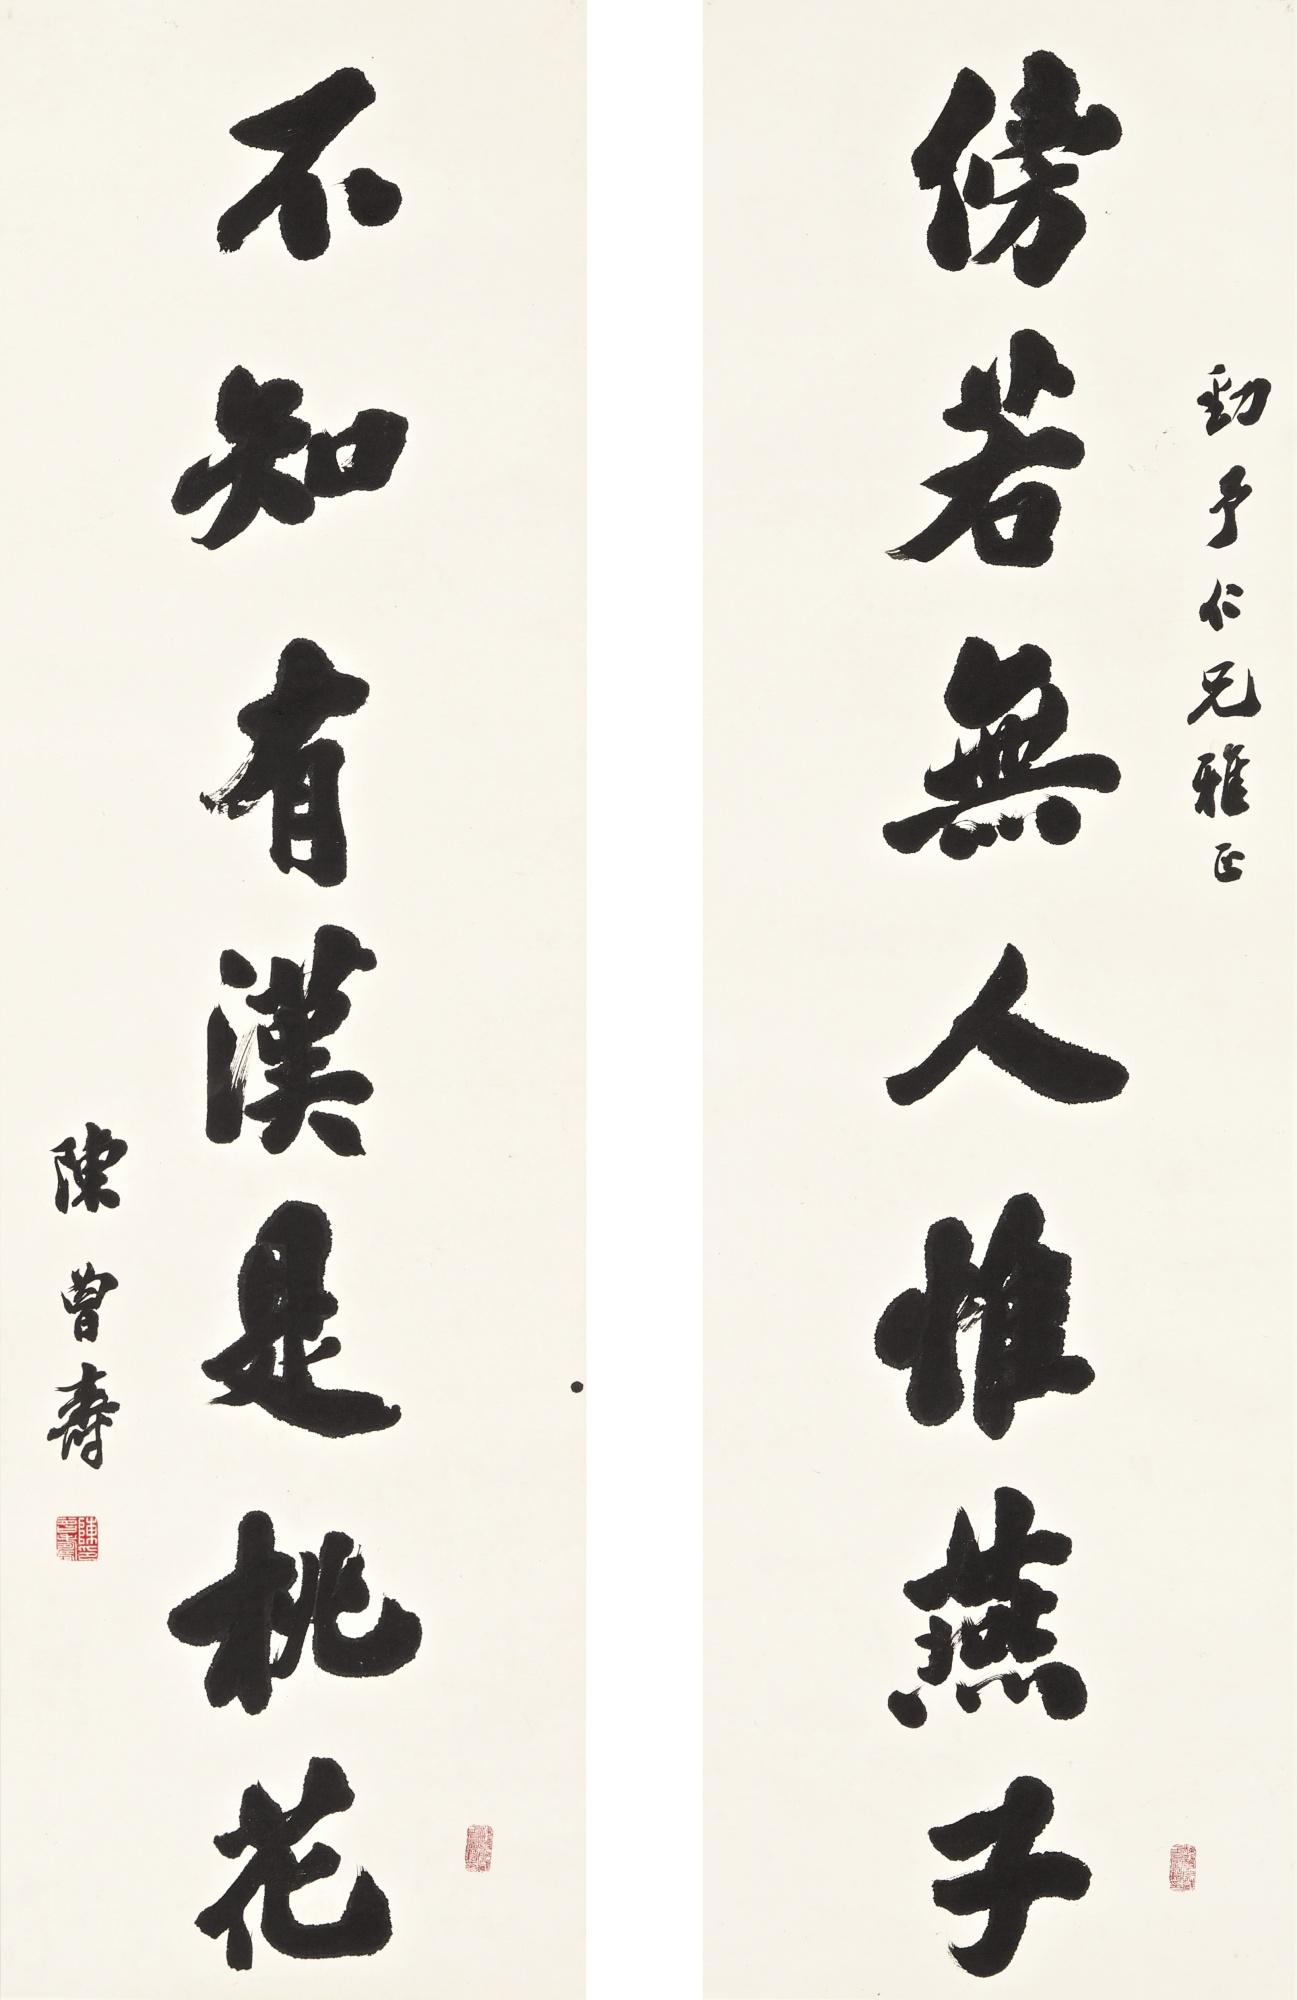 勁予仁兄雅正
傍若無人惟燕子
不知有漢是桃花
陳曾壽